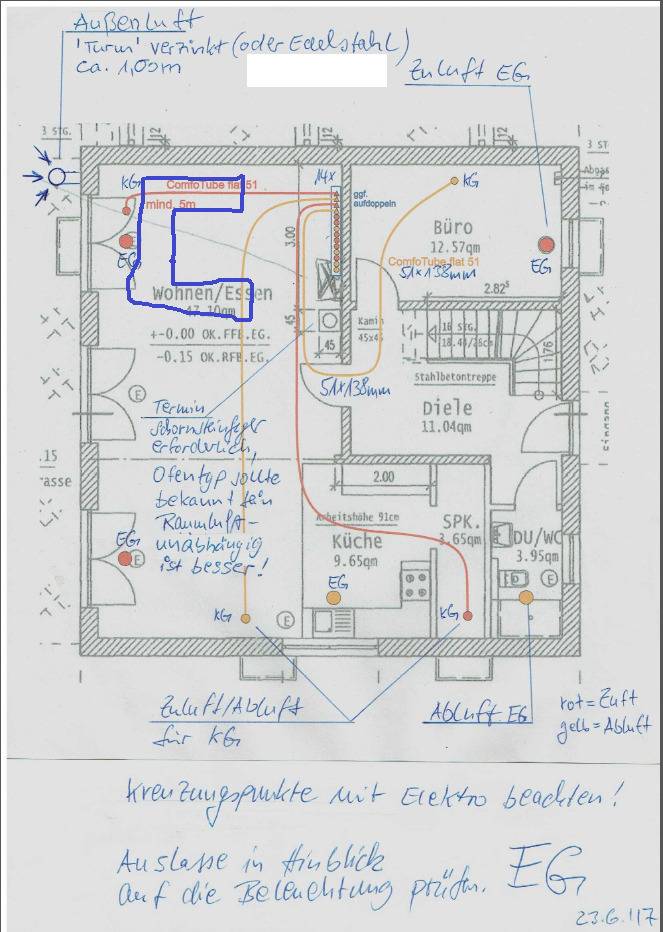 Außenluft
'Turm' verzinkt (oder Edelstahl)
ca. 1,00m
Zuluft EG
3 STG.
12
12
3 ST
KG
ComfoTube flat 51
mind. 5m
14x
ggf.
aufdoppeln
KG
Büro
12.57qm
EG
EG
3.00
ComfoTube flat 51
51x138mm
2.82⁵
Wohnen/Essen
47.10qm
+-0.00 OK.FFB.EG.
-0.15 OK.RFB.EG.
45
45
Kamin
45x45
16 STG.
1.76
Stahlbetontreppe
51x138mm
Diele
11.04qm
E
.15
asse
Termin
Schornsteinfeger
erforderlich,
Ofentyp sollte
bekannt sein
Raumluft-
unabhängig
ist besser!
2.00
Arbeitshöhe 91cm
Küche
9.65qm
SPK.
3.65qm
DU/WC
3.95qm
EG
E
EG
E
KG
E
KG
Zuluft/Abluft
für KG
Abluft EG
rot = Zuft
gelb = Abluft
Kreuzungspunkte mit Elektro beachten!
Auslasse in Hinblick
auf die Beleuchtung prüfen.
EG
23.6.'17